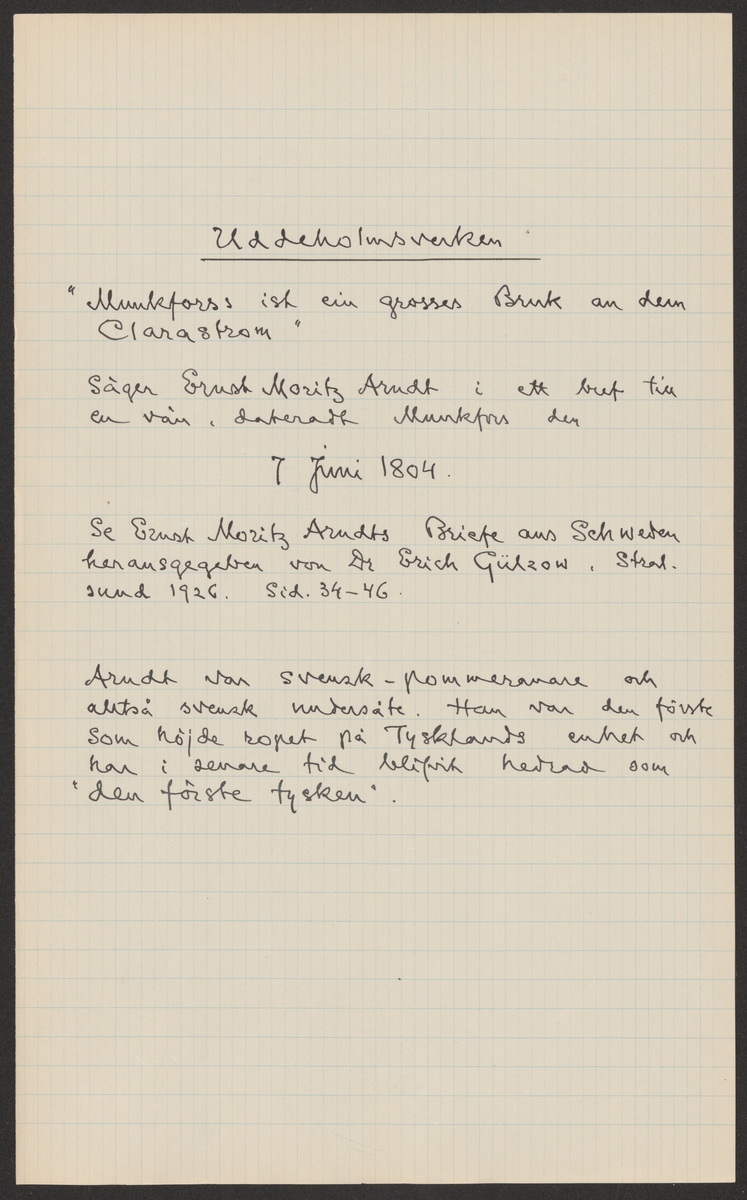 Uddeholmsverken
"Munkforss ist ein grosses Bruk an dem
Clarastrom"
Säger Ernst Moritz Arndt i ett bref till
en vän, dateradt Munkfors den
7 Juni 1804.
Se Ernst Moritz Arndts Briefe aus Schweden
herausgegeben von Dr Erich Gülzow, Stral-
sund 1926. Sid. 34-46.
Arndt var svensk-pommeranare och
alltså svensk undersåte. Han var den förste
som höjde ropet på Tysklands enhet och
har i senare tid blifvit hedrad som
"den förste tysken".